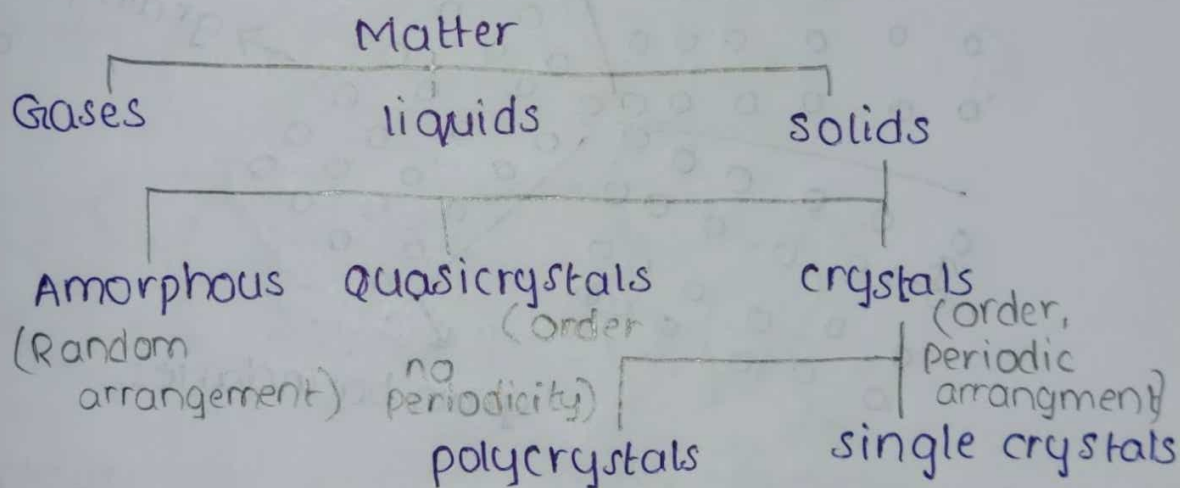 Matter
Gases liquids solids
Amorphous quasicrystals crystals
(Random arrangement) (order no periodicity) (order, periodic arrangment)
polycrystals single crystals